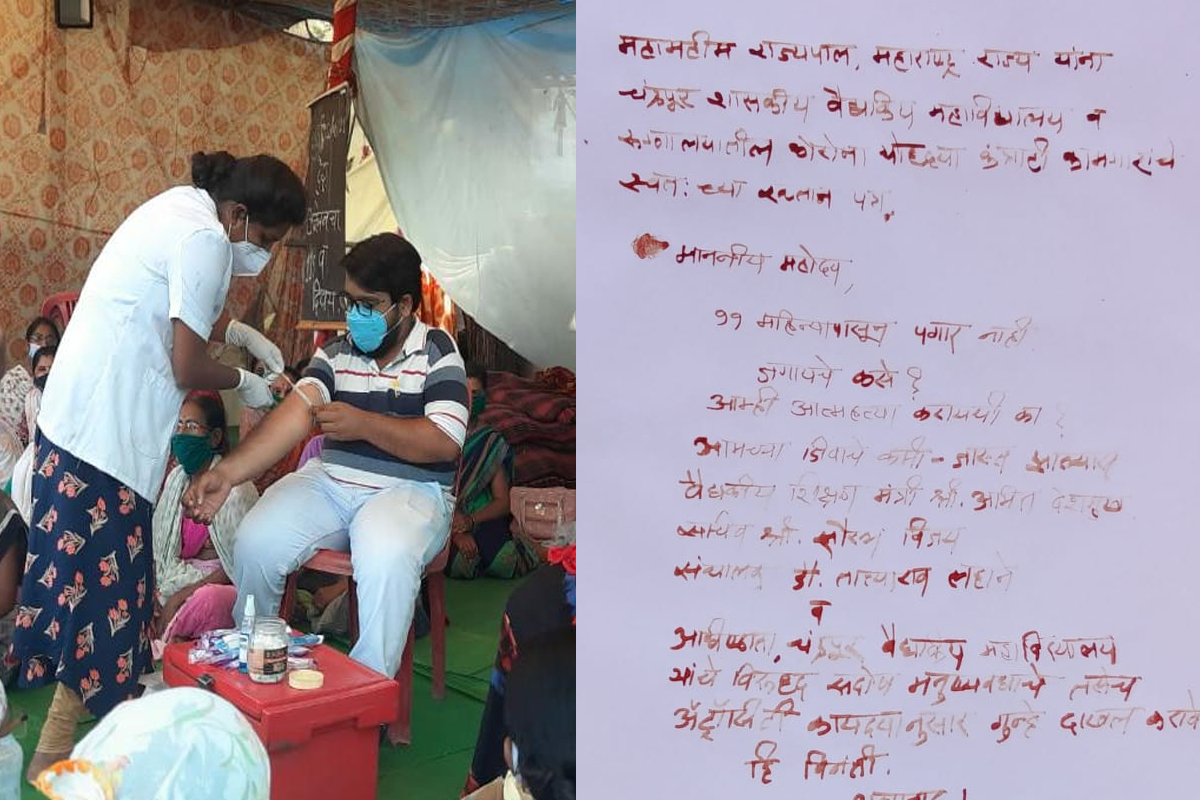 दिवस
महामहीम राज्यपाल, महाराष्ट्र राज्य यांना
चंद्रपूर शासकीय वैद्यकिय महाविद्यालय व
रुग्णालयातील कोरोना योद्धया कंत्राटी कामगारांचे
स्वत: च्या रक्तान पत्र.
माननीय महोदय,
११ महिन्यापासून पगार नाही
जगायचे कसे ?
आम्ही आत्महत्या करायची का ?
आमच्या जिवाचे कमी-जास्त झाल्यास
वैद्यकीय शिक्षण मंत्री श्री. अमित देशमुख
सचिव श्री. सौरभ विजय
संचालक डॉ. तात्याराव लहाने
व
अधिष्ठाता, चंद्रपूर वैद्यकिय महाविद्यालय
यांचे विरूध्द सदोष मनुष्यवधाचे तसेच
अॅट्रॉसिटी कायदयानुसार गुन्हे दाखल करावे
हि विनंती.